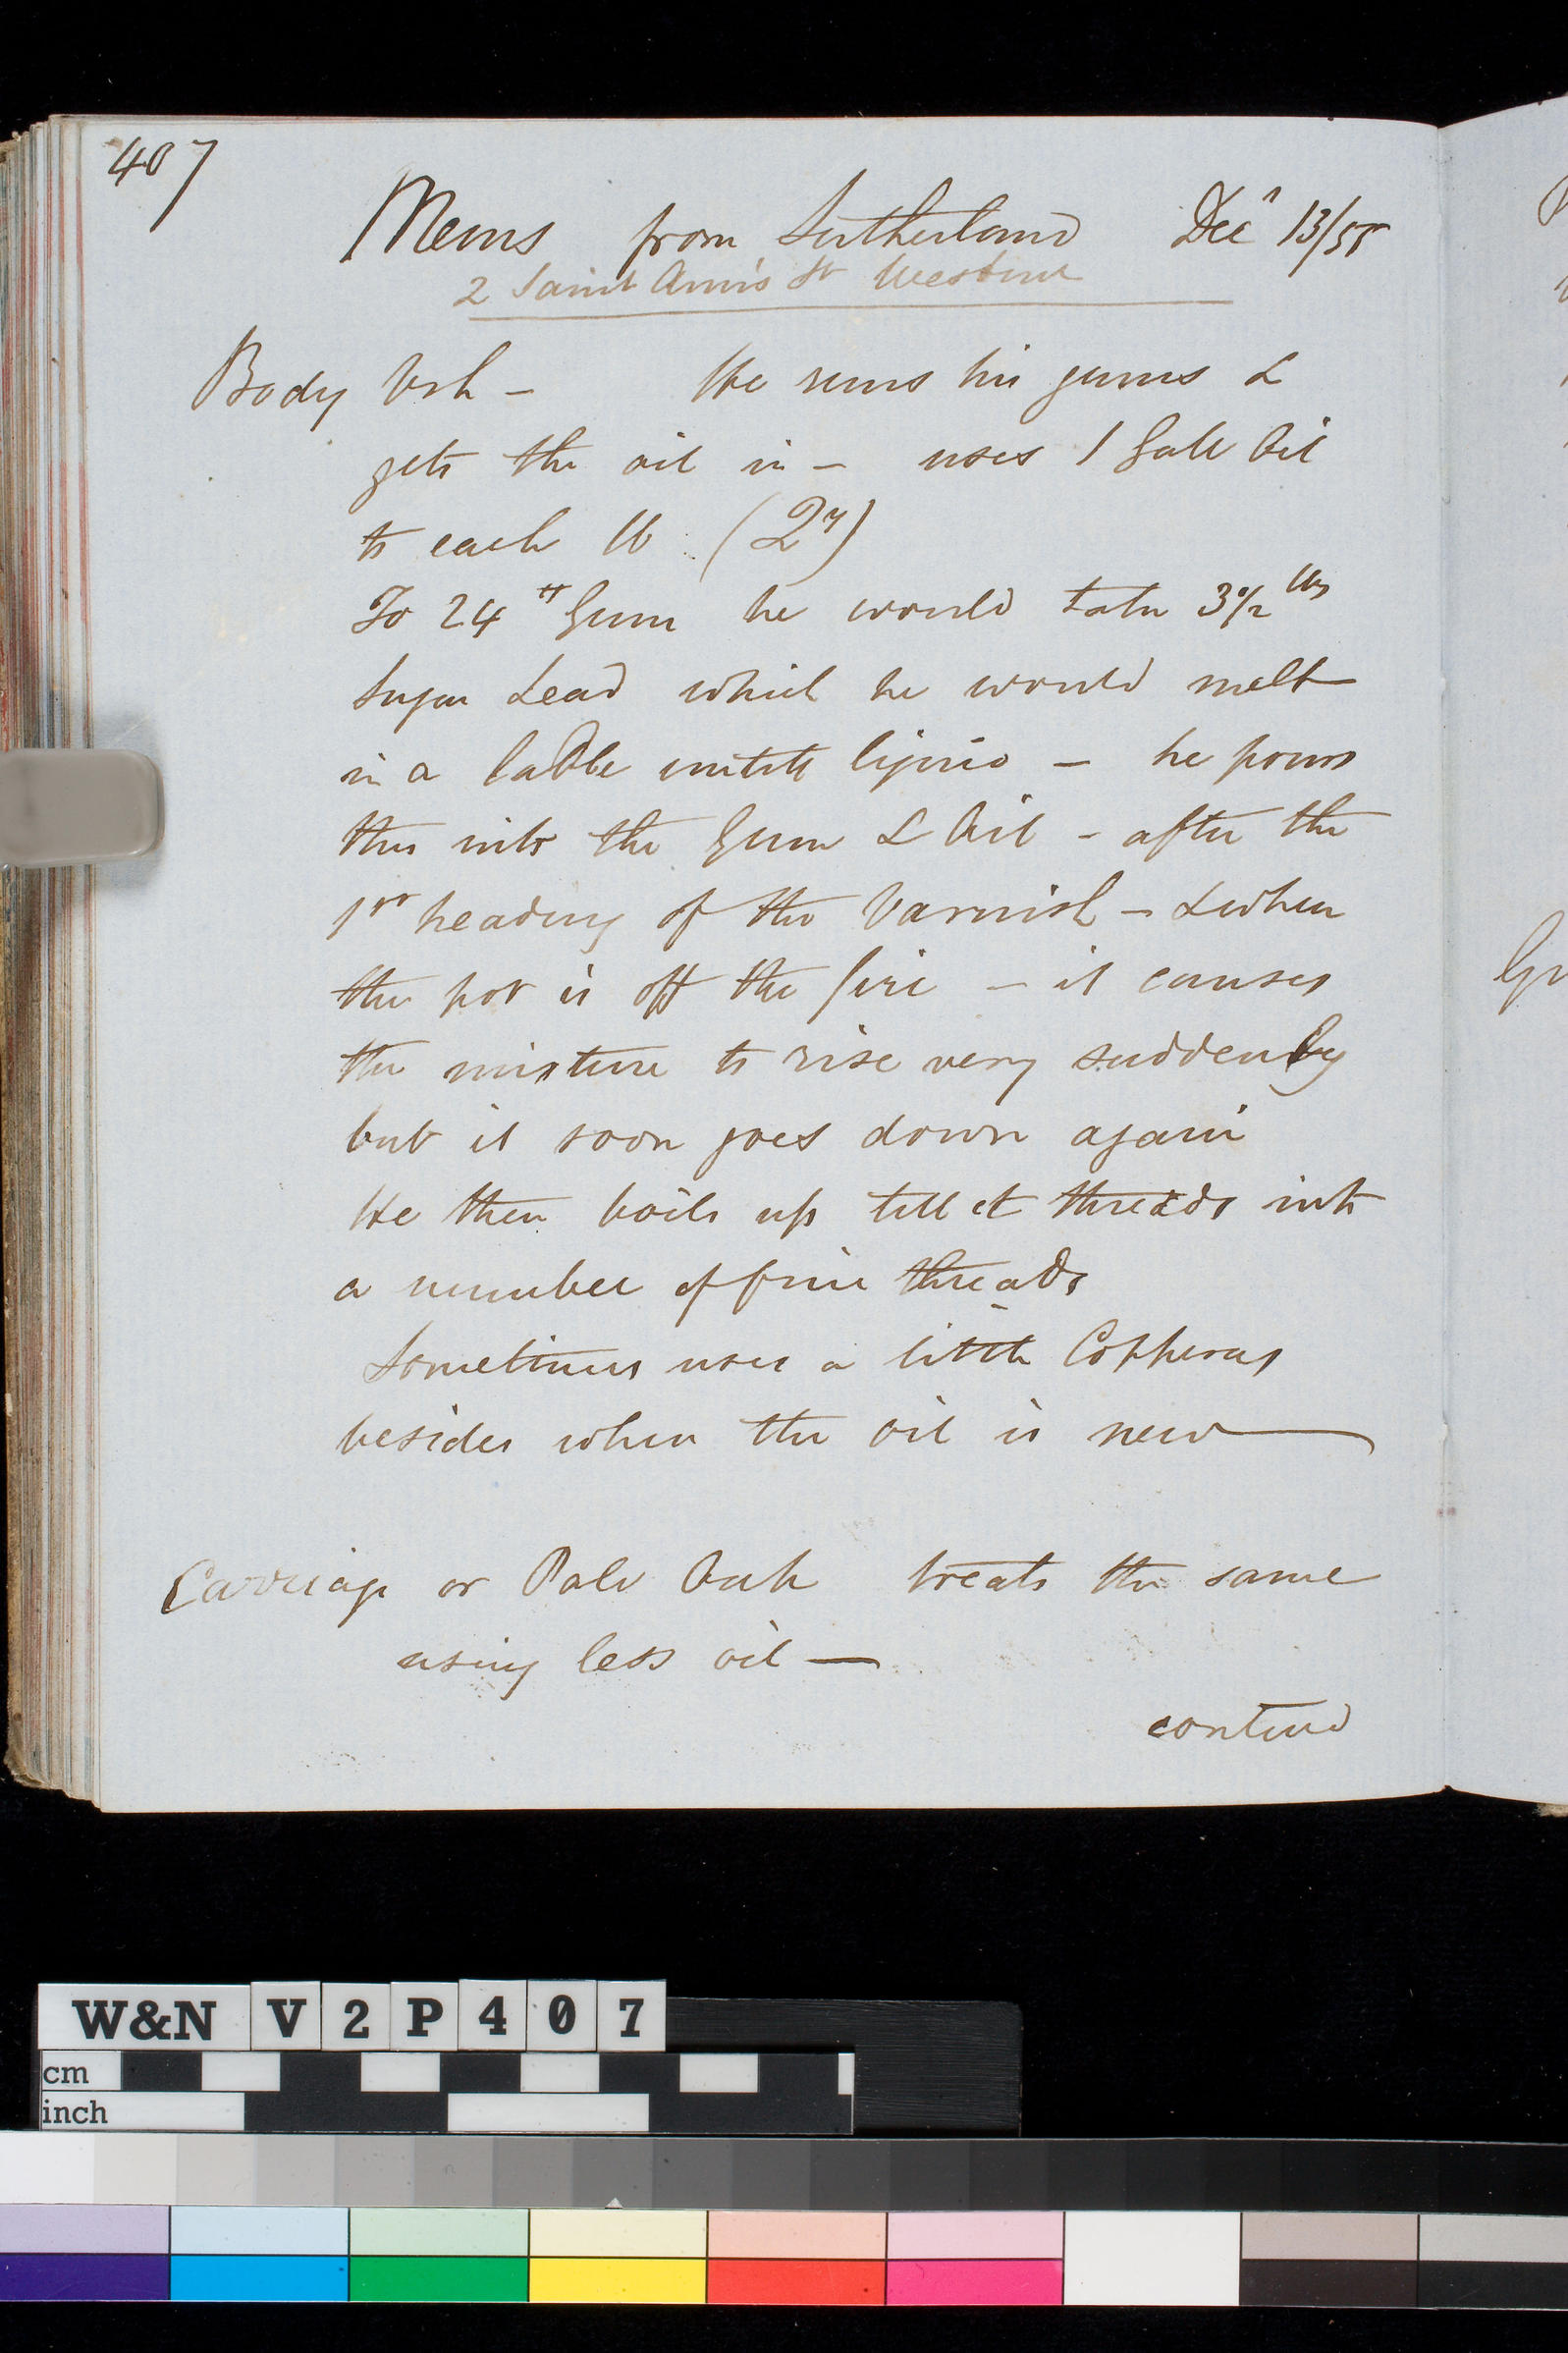 407
Mems from Sutherland Decr 13/55
2 Saint Ann's St Westmr
Body Vsh - He runs his gums &
gets the oil in - uses 1 Gall Oil
to each lb (Qy)
To 24 # Gum he would take 3 1/2 lbs
Sugar Lead which he would melt
in a ladle until liquid - he pours
this into the Gum & Oil - after the
1st heading of the Varnish - & when
the pot is off the fire - it causes
the mixture to rise very suddenly
but it soon goes down again
He then boils up till it threads into
a number of fine threads
Sometimes uses a little Copperas
besides when the oil is new
Carriage or Pale Oak treats the same
using less oil -
contind
W&N V 2 P 4 0 7
cm
inch